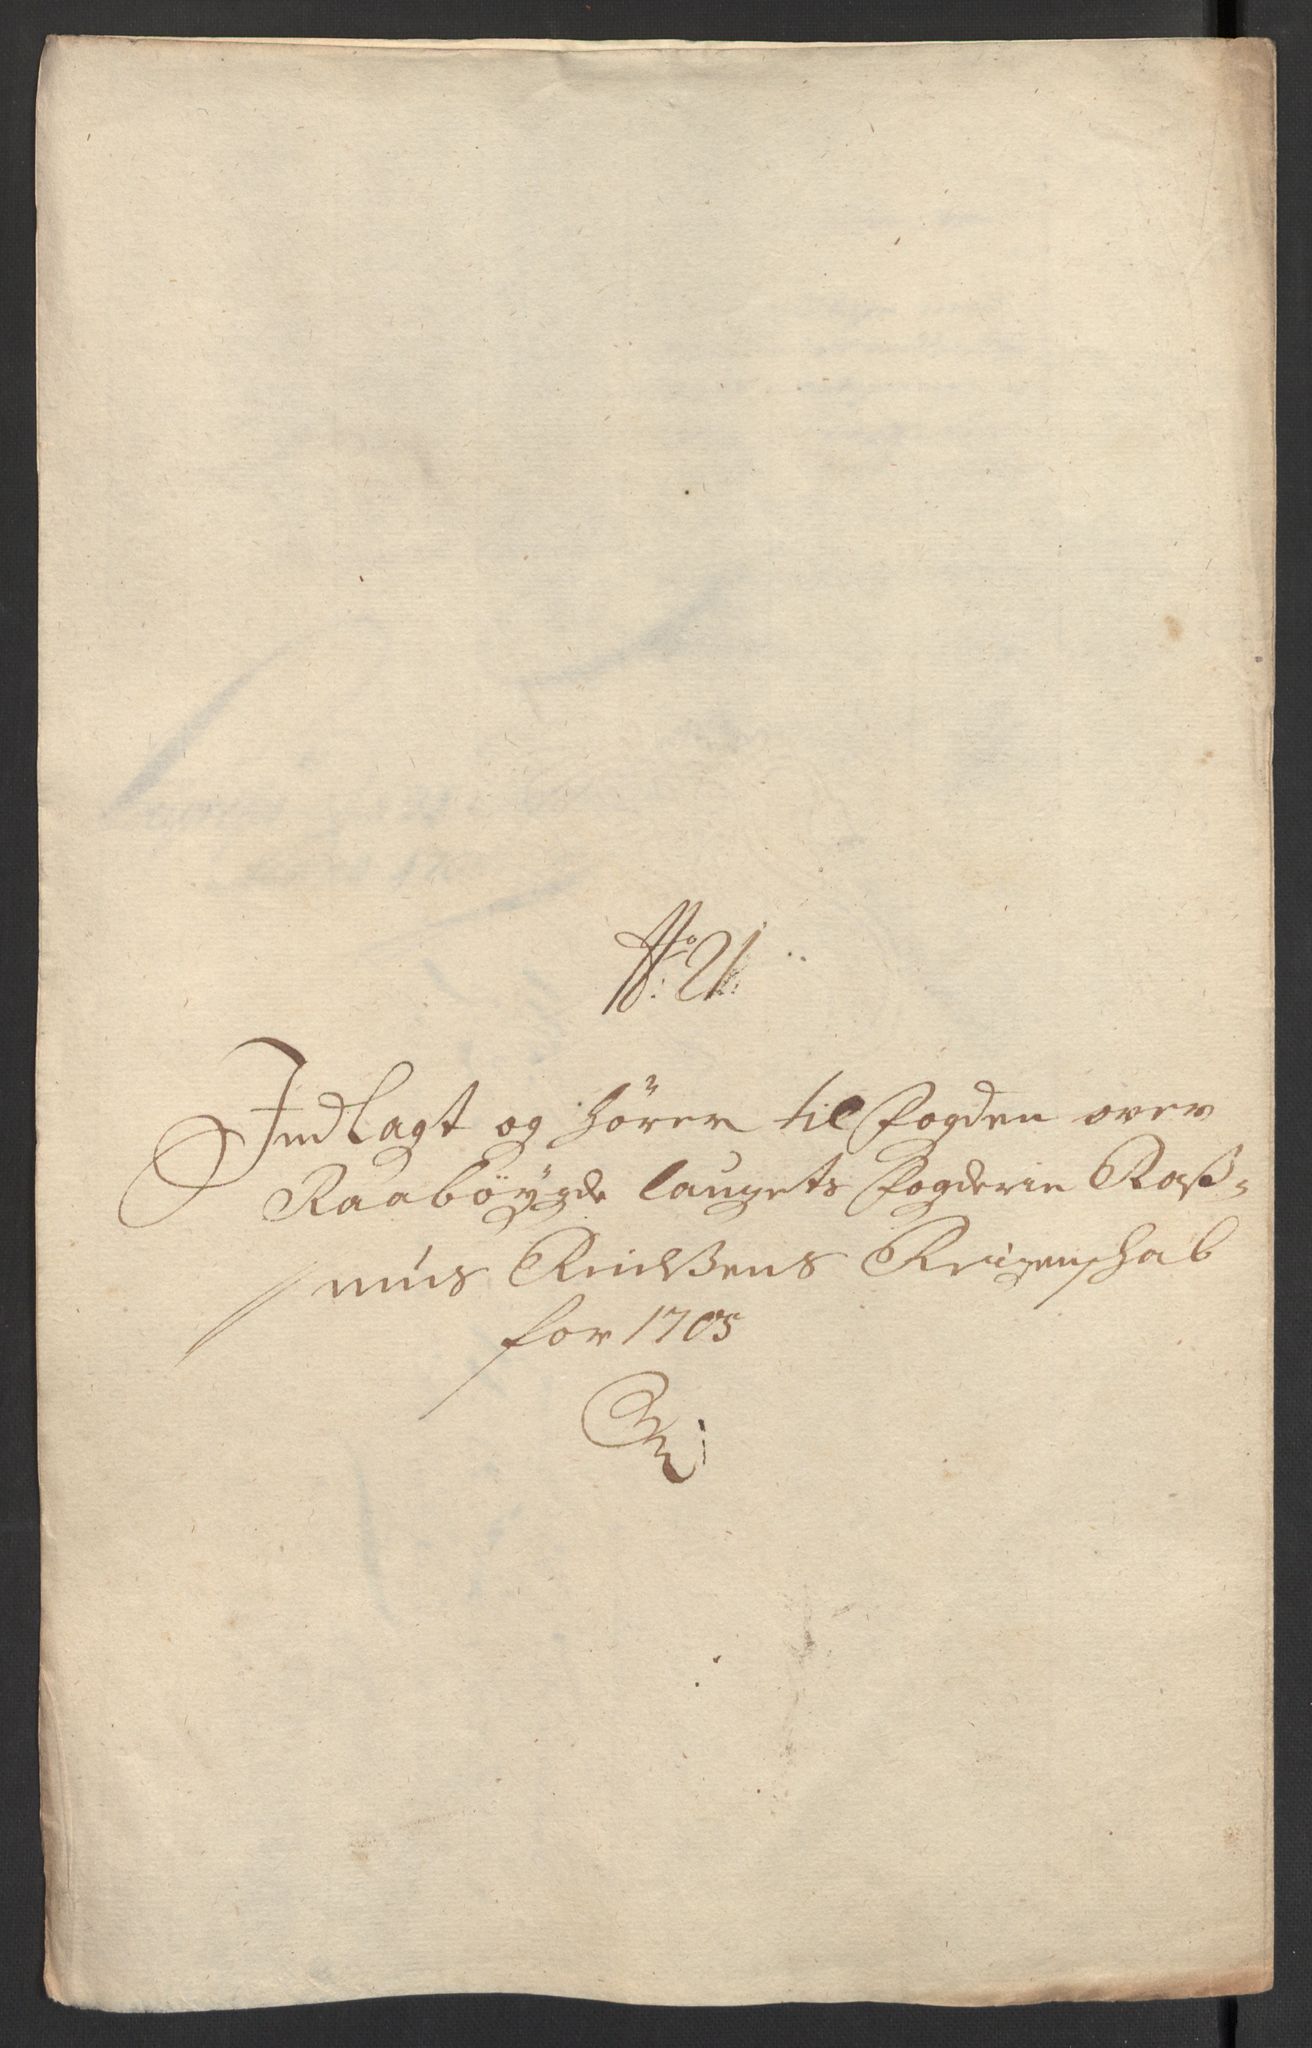 No: 21.
Indlagt og hörer til fogden over
Raaböygde laugets fogderie Raß=
mus Knudßens Reigenschab
for 1705